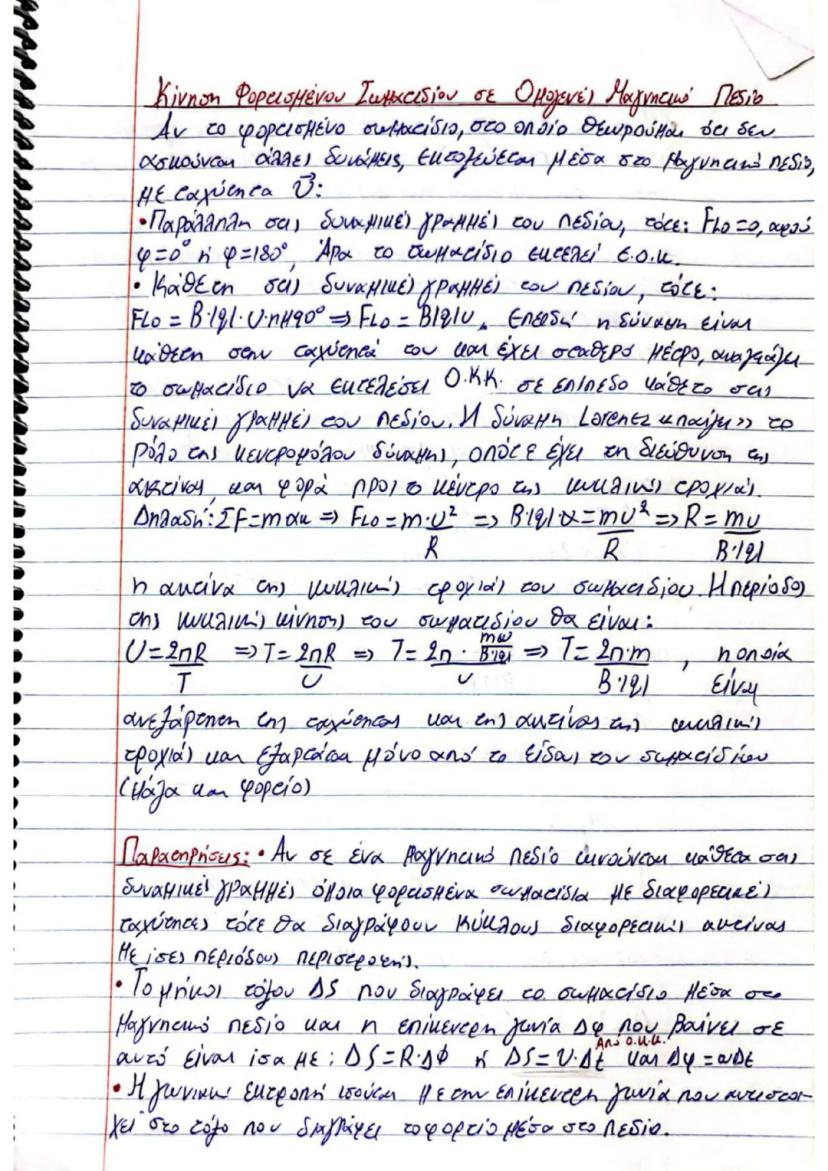 Κίνηση Φορτισμένου Σωματιδίου σε Ομογενές Μαγνητικό Πεδίο
Αν το φορτισμένο σωματίδιο, στο οποίο θεωρούμαι ότι δεν
ασκούνται άλλες δυνάμεις, εκτοξεύεται μέσα στο μαγνητικό πεδίο,
με ταχύτητα υ⃗:
• Παράλληλη στις δυναμικές γραμμές του πεδίου, τότε: FLo=0, αφού
φ=0° ή φ=180°, Άρα το σωματίδιο εκτελεί Ε.Ο.Κ.
• Κάθετη στις δυναμικές γραμμές του πεδίου, τότε:
FLo = B·|q|·υ·ημ90° ⇒ FLo = B|q|υ. Επειδή η δύναμη είναι
κάθετη στην ταχύτητά του και έχει σταθερό μέτρο, αναγκάζει
το σωματίδιο να εκτελέσει Ο.Κ.Κ. σε επίπεδο κάθετο στις
δυναμικές γραμμές του πεδίου. Η δύναμη Lorentz «παίζει» το
ρόλο της κεντρομόλου δύναμης, οπότε έχει τη διεύθυνση της
ακτίνας και φορά προς το κέντρο της κυκλικής τροχιάς.
Δηλαδή: ΣF=mακ ⇒ FLo = m·υ²/R ⇒ B·|q|·υ = mυ²/R ⇒ R = mυ/B·|q|
η ακτίνα της κυκλικής τροχιάς του σωματιδίου. Η περίοδος
της κυκλικής κίνησης του σωματιδίου θα είναι:
υ = 2πR/T ⇒ T = 2πR/υ ⇒ T = 2π · mυ/B·|q|/υ ⇒ T = 2π·m/B·|q| , η οποία είναι
ανεξάρτητη της ταχύτητας και της ακτίνας της κυκλικής
τροχιάς και εξαρτάται μόνο από το είδος του σωματιδίου
(μάζα και φορτίο)
Παρατηρήσεις: • Αν σε ένα μαγνητικό πεδίο κινούνται κάθετα στις
δυναμικές γραμμές όμοια φορτισμένα σωματίδια με διαφορετικές
ταχύτητες τότε θα διαγράφουν κύκλους διαφορετικής ακτίνας
με ίσες περιόδους περιστροφής.
• Το μήκος τόξου ΔS που διαγράφει το σωματίδιο μέσα στο
μαγνητικό πεδίο και η επίκεντρη γωνία Δφ που βαίνει σε
αυτό είναι ίσα με: ΔS=R·Δφ ή ΔS=υ·Δt Από Ο.Κ.Κ. και Δφ=ωΔt
• Η γωνιακή εκτροπή ισούται με την επίκεντρη γωνία που αντιστοι-
χεί στο τόξο που διαγράφει το φορτίο μέσα στο πεδίο.